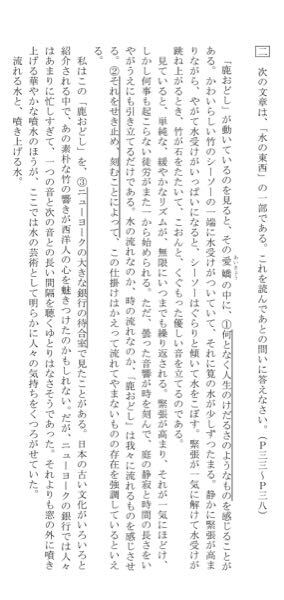 二 次の文章は、「水の東西」の一部である。これを読んであとの問いに答えなさい。（P三三～P三八）
「鹿おどし」が動いているのを見ると、その愛嬌の中に、①何となく人生のけだるさのようなものを感じることが
ある。かわいらしい竹のシーソーの一端に水受けがついていて、それに筧の水が少しずつたまる。静かに緊張が高ま
りながら、やがて水受けがいっぱいになると、シーソーはぐらりと傾いて水をこぼす。緊張が一気に解けて水受けが
跳ね上がるとき、竹が石をたたいて、こおんと、くぐもった優しい音を立てるのである。
見ていると、単純な、緩やかなリズムが、無限にいつまでも繰り返される。緊張が高まり、それが一気にほどけ、
しかし何事も起こらない徒労がまた一から始められる。ただ、曇った音響が時を刻んで、庭の静寂と時間の長さをい
やがうえにも引き立てるだけである。水の流れなのか、時の流れなのか、「鹿おどし」は我々に流れるものを感じさせ
る。②それをせき止め、刻むことによって、この仕掛けはかえって流れてやまないものの存在を強調しているといえ
る。
私はこの「鹿おどし」を、③ニューヨークの大きな銀行の待合室で見たことがある。日本の古い文化がいろいろと
紹介される中で、あの素朴な竹の響きが西洋人の心を魅きつけたのかもしれない。だが、ニューヨークの銀行では人々
はあまりに忙しすぎて、一つの音と次の音との長い間隔を聴くゆとりはなさそうであった。それよりも窓の外に噴き
上げる華やかな噴水のほうが、ここでは水の芸術として明らかに人々の気持ちをくつろがせていた。
流れる水と、噴き上げる水。